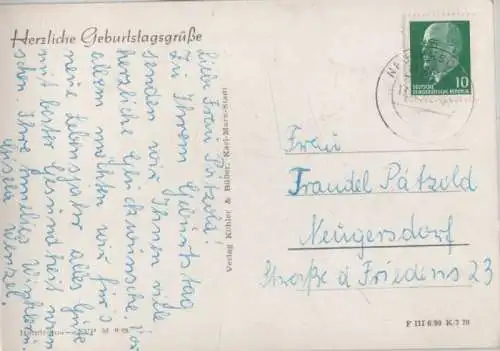 Herzliche Geburtstagsgrüße
Liebe Frau Pätzold!
Zu Ihrem Geburtstag
senden wir Ihnen viele
herzliche Glückwünsche, vor
allem möchten wir für's
neue Lebensjahr alles Gute
mit bester Gesundheit wün-
schen. Ihre
Gisela Wenzel.
Verlag Köhler & Büller, Karl-Marx-Stadt
DEUTSCHE
DEMOKRATISCHE REPUBLIK
10
Frau
Traudel Pätzold
Neugersdorf
Straße d Friedens 23
F III 6/69 K/3 70